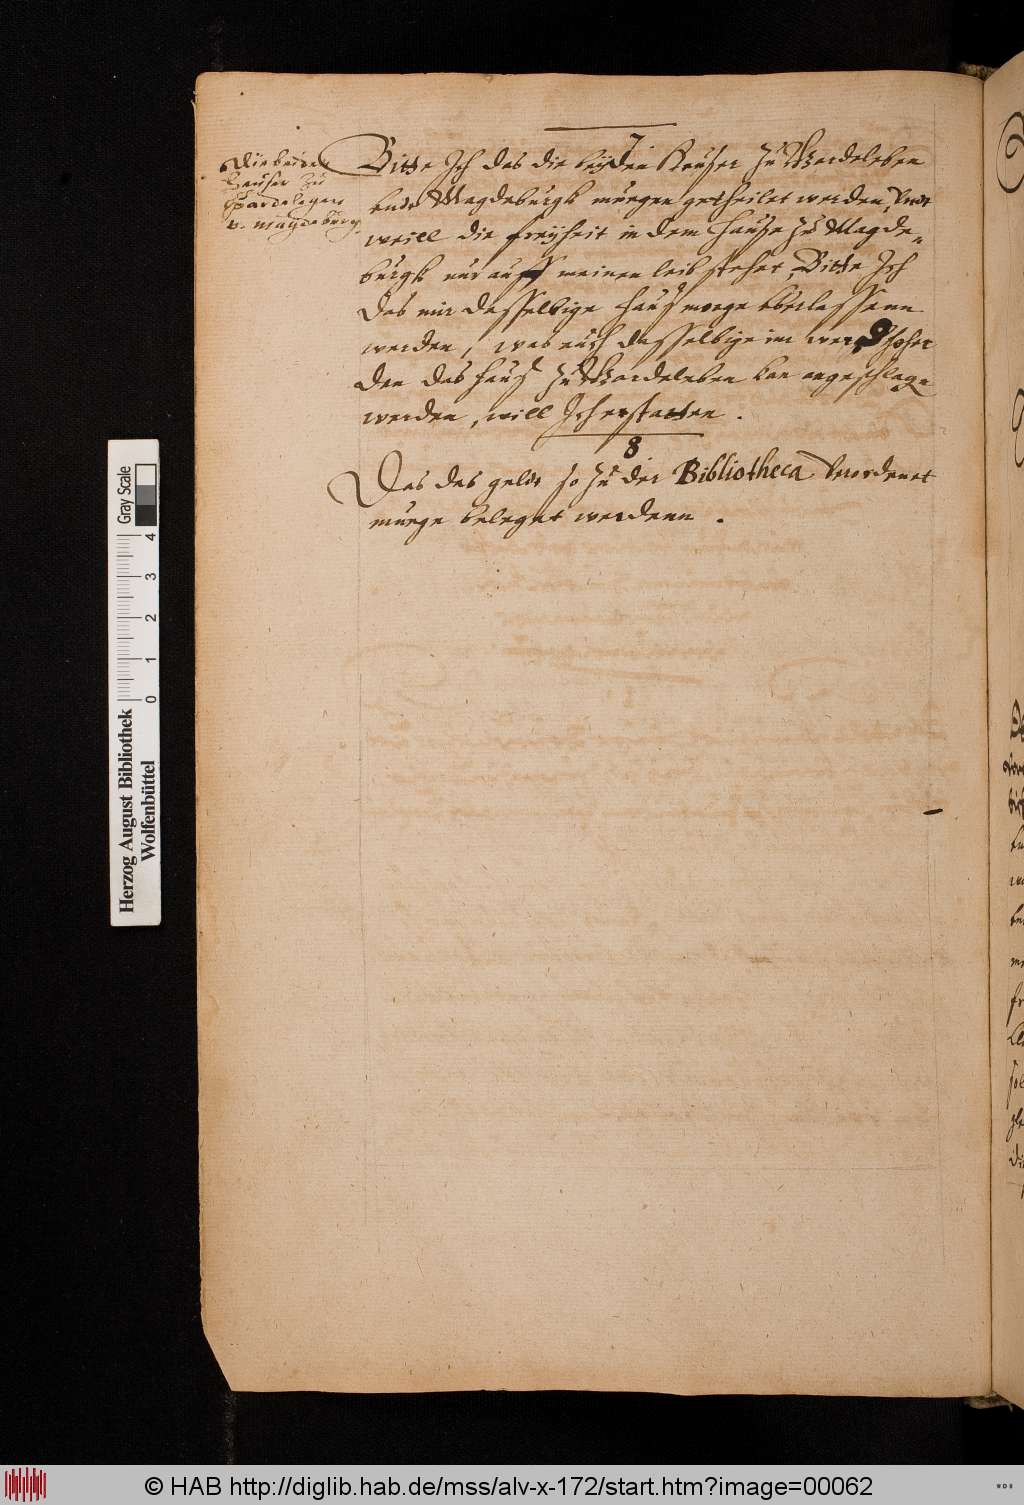 7.
Die beiden
Heuser zu
Gardelegen
v. Magdeburg.
Bitte Ich das die beyden Heuser zu Gardeleben
undt Magdeburgk mügen getheilet werden, Undt
weill die freyheit in dem Hause zu Magde-
burgk nur auff meinen leib stehet, Bitte Ich
das mir dasselbige Hauß möge uberlassenn
werden, was auch dasselbige im werdt hoher
den das Hauß zu Gardeleben kan angeschlagen
werden, will Ich erstatten.
8
Das das geldt so zu der Bibliotheca verordenet
müege beleget werdenn.
Gray Scale
0 1 2 3 4
Herzog August Bibliothek
Wolfenbüttel
© HAB http://diglib.hab.de/mss/alv-x-172/start.htm?image=00062